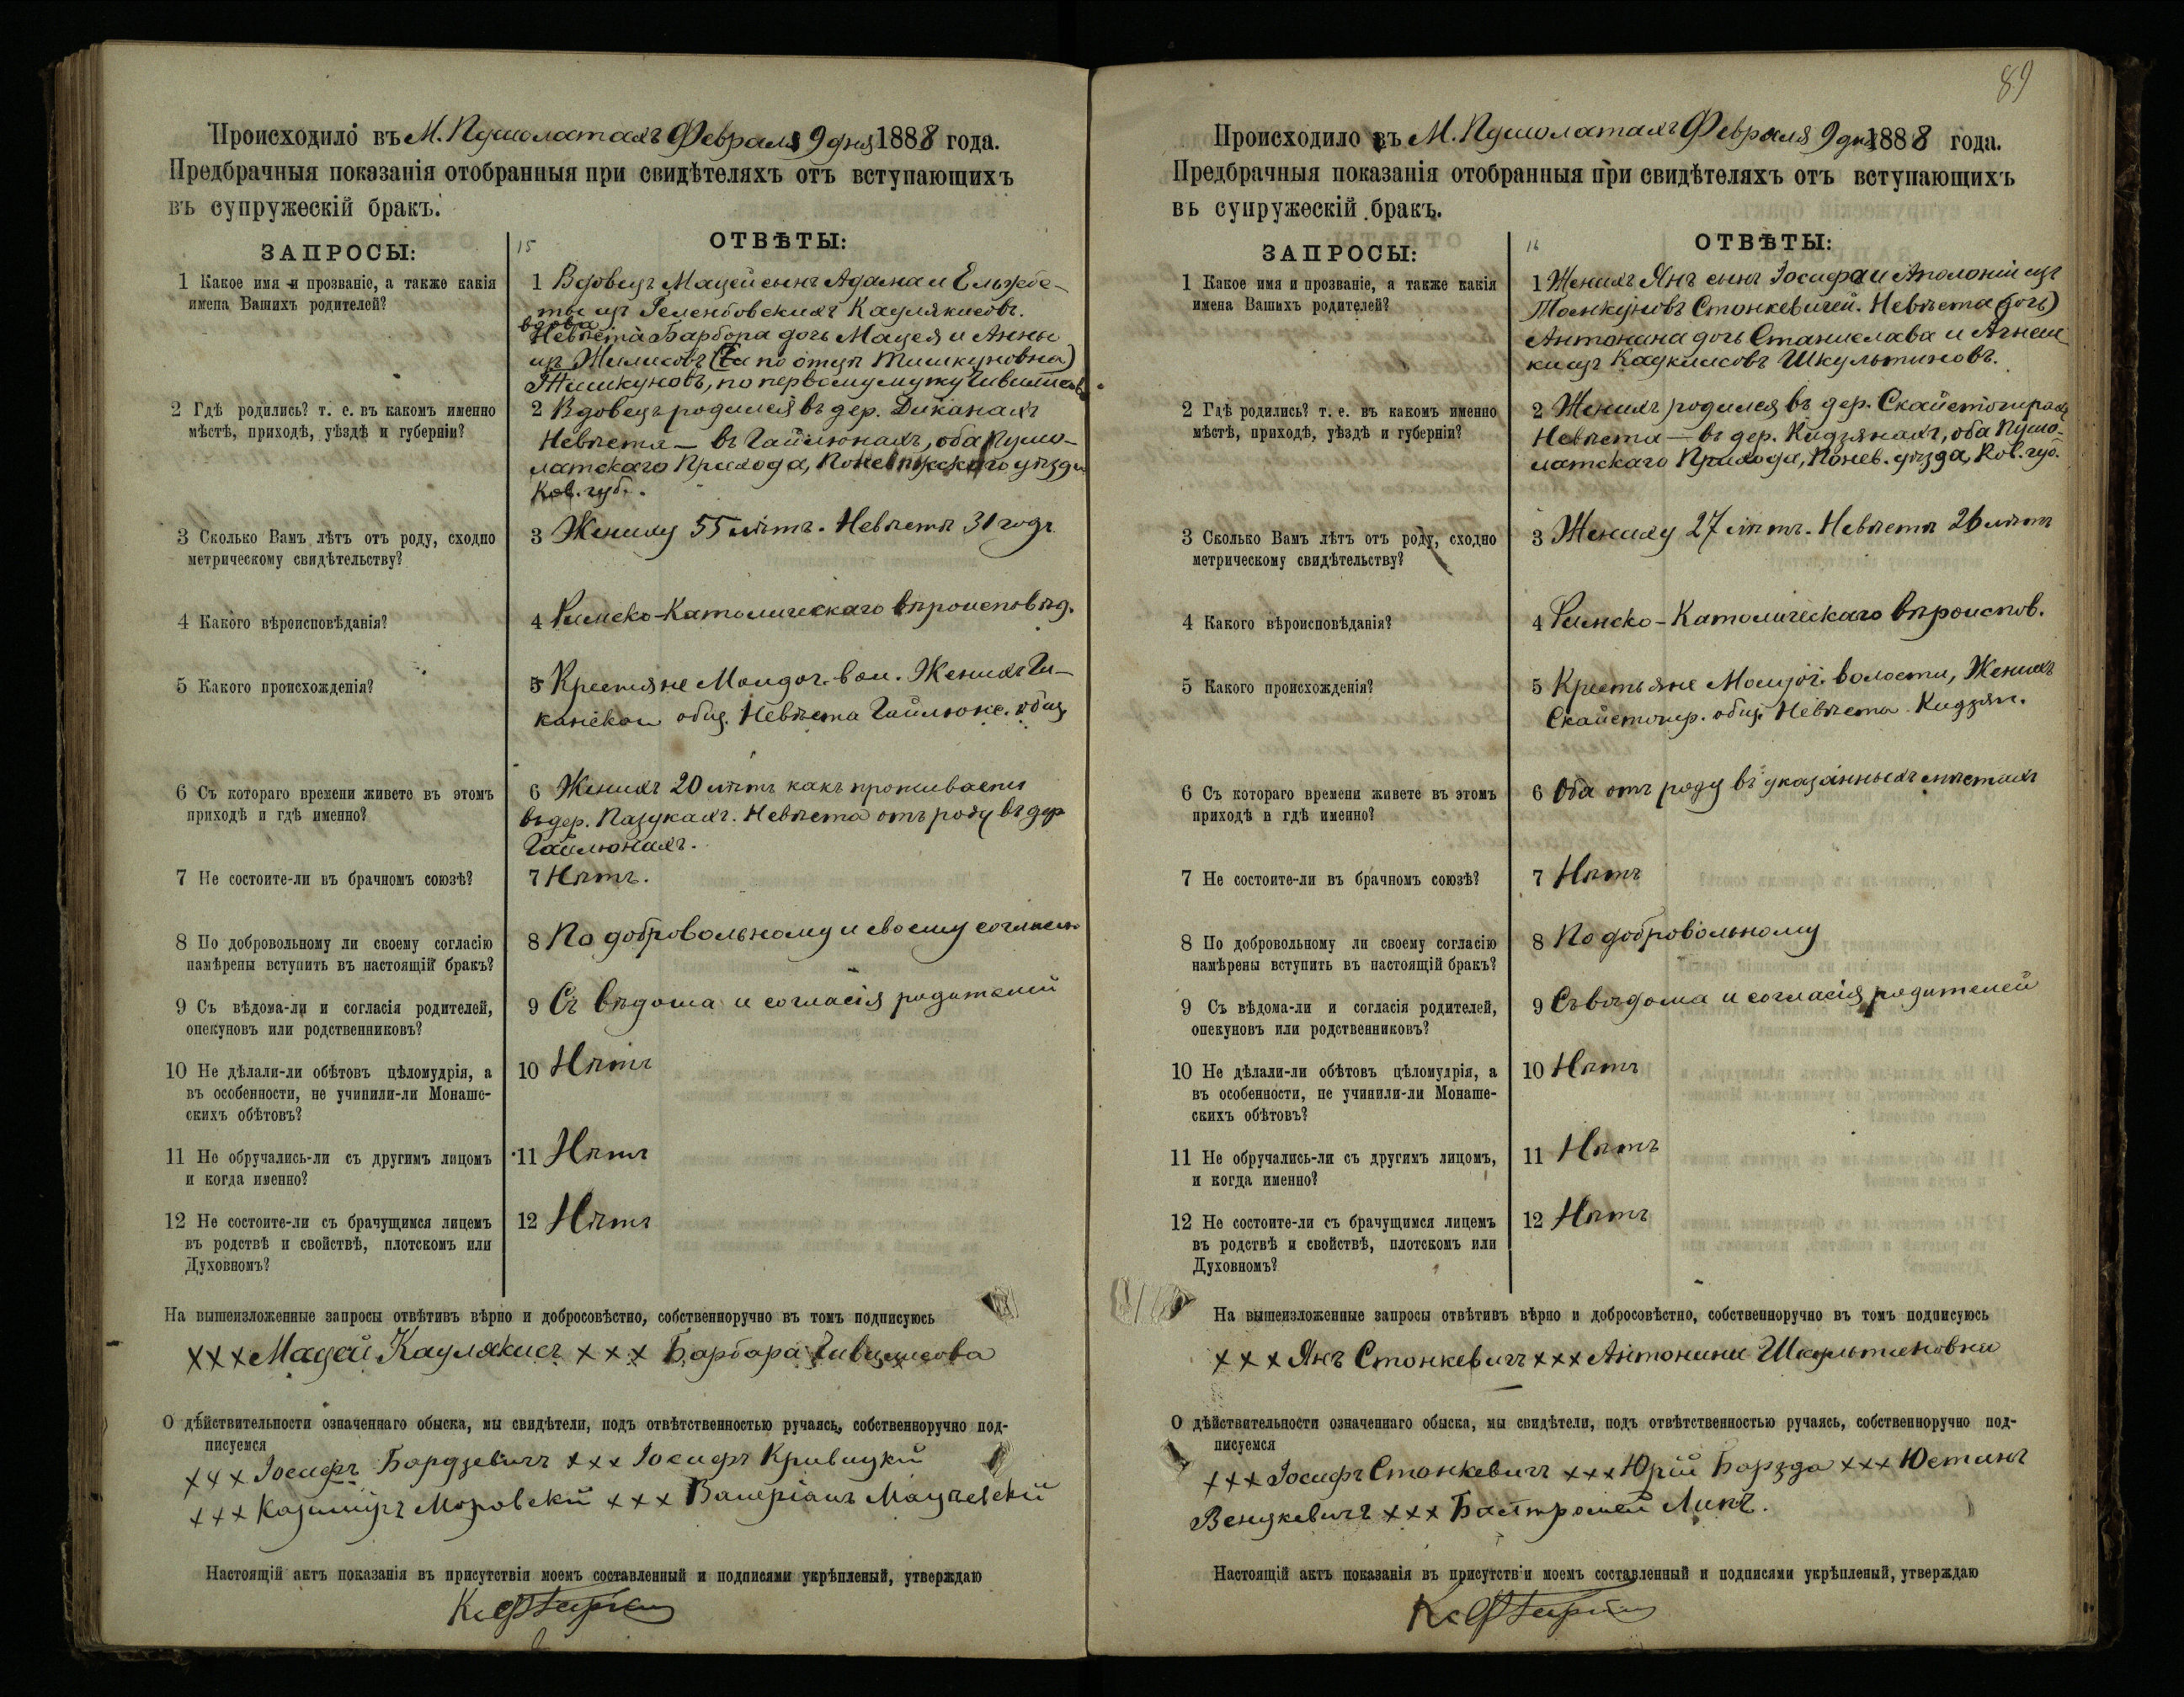 Происходило въ М. Пушолатахъ Февраля 9 дня 1888 года.
Предбрачныя показанія отобранныя при свидѣтеляхъ отъ вступающихъ
въ супружескій бракъ.
ЗАПРОСЫ:
15
ОТВѢТЫ:
1 Какое имя и прозваніе, а также какія
имена Вашихъ родителей?
1 Вдовецъ Мацей сынъ Адама и Ельжбе-
ты изъ Гелембовскихъ Каулякисовъ.
вдова
Невѣста Барбора дочь Мацея и Анны
изъ Жилисовъ (по отцу Тишкуновна)
Тишкуновъ, по первому мужу
2 Гдѣ родились? т. е. въ какомъ именно
мѣстѣ, приходѣ, уѣздѣ и губерніи?
2 Вдовецъ родился въ дер. Диканахъ
Невѣста — въ Гайлюнахъ, оба Пушо-
латскаго Прихода, Поневѣжскаго уѣзда
Ков. губ.
3 Сколько Вамъ лѣтъ отъ роду, сходно
метрическому свидѣтельству?
3 Жениху 55 лѣтъ. Невѣстѣ 31 годъ
4 Какого вѣроисповѣданія?
4 Римско-Католическаго вѣроисповѣд.
5 Какого происхожденія?
5 Крестьяне вол. Женихъ Ди-
канской общ. Невѣста Гайлюнс. общ.
6 Съ котораго времени живете въ этомъ
приходѣ и гдѣ именно?
6 Женихъ 20 лѣтъ какъ проживаетъ
въ дер. Пазукахъ. Невѣста отъ роду въ дер
Гайлюнахъ.
7 Не состоите-ли въ брачномъ союзѣ?
7 Нѣтъ.
8 По добровольному ли своему согласію
намѣрены вступить въ настоящій бракъ?
8 По добровольному и своему согласію
9 Съ вѣдома-ли и согласія родителей,
опекуновъ или родственниковъ?
9 Съ вѣдома и согласія родителей
10 Не дѣлали-ли обѣтовъ цѣломудрія, а
въ особенности, не учинили-ли Монаше-
скихъ обѣтовъ?
10 Нѣтъ
11 Не обручались-ли съ другимъ лицомъ
и когда именно?
11 Нѣтъ
12 Не состоите-ли съ брачущимся лицемъ
въ родствѣ и свойствѣ, плотскомъ или
Духовномъ?
12 Нѣтъ
На вышеизложенные запросы отвѣтивъ вѣрно и добросовѣстно, собственноручно въ томъ подписуюсь
xxx Мацей Каулякисъ xxx Барбара
О дѣйствительности означеннаго обыска, мы свидѣтели, подъ отвѣтственностью ручаясь, собственноручно под-
писуемся
xxx Іосифъ Бордзевичъ xxx Іосифъ Кривицкій
xxx Казимиръ Моровскій xxx Валеріанъ Мацѣевскій
Настоящій актъ показанія въ присутствіи моемъ составленный и подписями укрѣпленый, утверждаю
89
Происходило въ М. Пушолатахъ Февраля 9 дня 1888 года.
Предбрачныя показанія отобранныя при свидѣтеляхъ отъ вступающихъ
въ супружескій бракъ.
ЗАПРОСЫ:
16
ОТВѢТЫ:
1 Какое имя и прозваніе, а также какія
имена Вашихъ родителей?
1 Женихъ Янъ сынъ Іосифа и Аполоніи изъ
Станкевичей. Невѣста (дочь)
Антонина дочь Станислава и Агнеш-
ки изъ Кадкисовъ Шкультиновъ.
2 Гдѣ родились? т. е. въ какомъ именно
мѣстѣ, приходѣ, уѣздѣ и губерніи?
2 Женихъ родился въ дер. Скайстогирахъ
Невѣста — въ дер. Кидзянахъ, оба Пушо-
латскаго Прихода, Понев. уѣзда, Ков. губ.
3 Сколько Вамъ лѣтъ отъ роду, сходно
метрическому свидѣтельству?
3 Жениху 27 лѣтъ. Невѣстѣ 26 лѣтъ
4 Какого вѣроисповѣданія?
4 Римско-Католическаго вѣроиспов.
5 Какого происхожденія?
5 Крестьяне волости, Женихъ
Скайстогир. общ. Невѣста Кидзян.
6 Съ котораго времени живете въ этомъ
приходѣ и гдѣ именно?
6 Оба отъ роду въ указанныхъ мѣстахъ
7 Не состоите-ли въ брачномъ союзѣ?
7 Нѣтъ
8 По добровольному ли своему согласію
намѣрены вступить въ настоящій бракъ?
8 По добровольному
9 Съ вѣдома-ли и согласія родителей,
опекуновъ или родственниковъ?
9 Съ вѣдома и согласія родителей
10 Не дѣлали-ли обѣтовъ цѣломудрія, а
въ особенности, не учинили-ли Монаше-
скихъ обѣтовъ?
10 Нѣтъ
11 Не обручались-ли съ другимъ лицомъ,
и когда именно?
11 Нѣтъ
12 Не состоите-ли съ брачущимся лицемъ
въ родствѣ и свойствѣ, плотскомъ или
Духовномъ?
12 Нѣтъ
На вышеизложенные запросы отвѣтивъ вѣрно и добросовѣстно, собственноручно въ томъ подписуюсь
xxx Янъ Станкевичъ xxx Антонина Шкультиновна
О дѣйствительности означеннаго обыска, мы свидѣтели, подъ отвѣтственностью ручаясь, собственноручно под-
писуемся
xxx Іосифъ Станкевичъ xxx Юрій Борзда xxx Юстинъ
Венцкевичъ xxx Балтромей Линъ.
Настоящій актъ показанія въ присутствіи моемъ составленный и подписями укрѣпленый, утверждаю